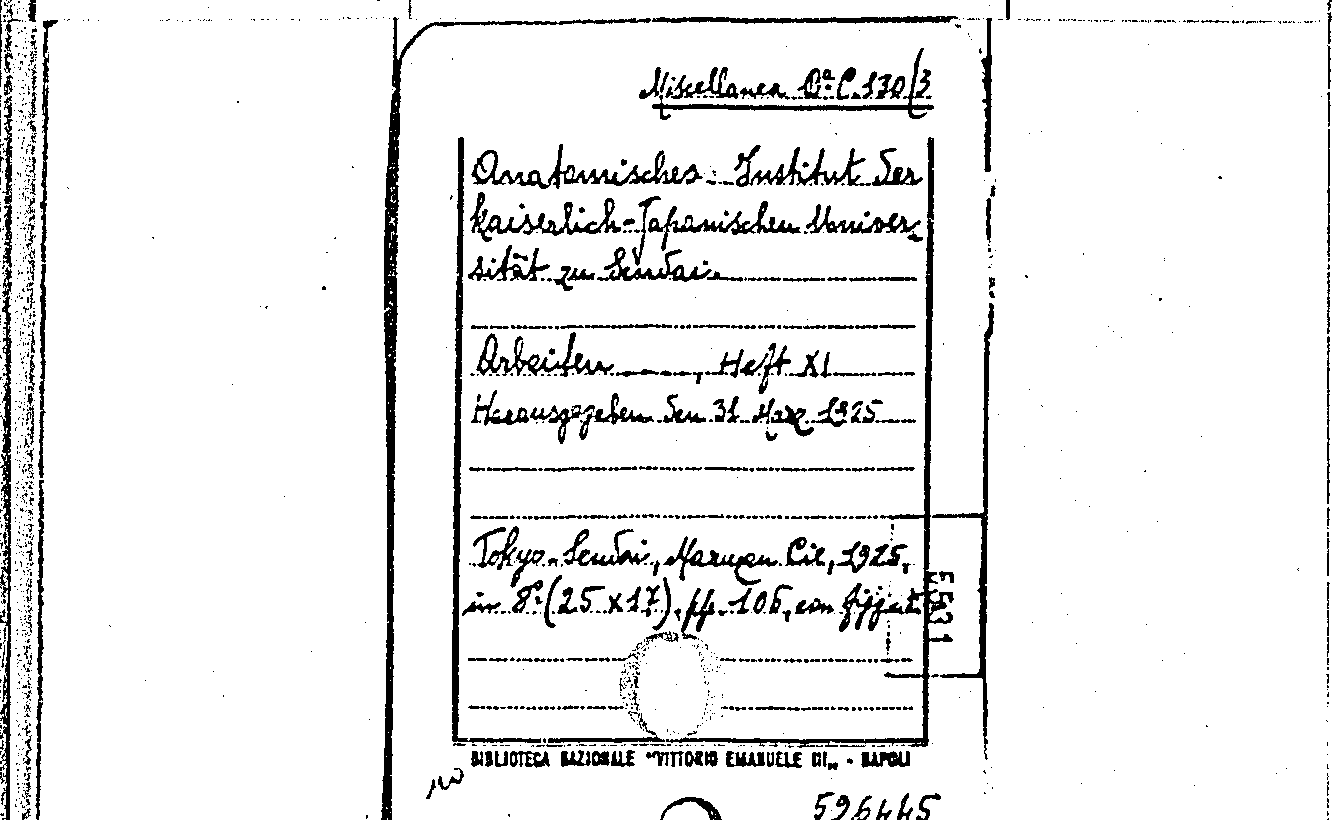 Miscellanea Qª C. 130/3
Anatomisches Institut der
kaiserlich-Japanischen Univer-
sität zu Sendai.
Arbeiten ...., Heft XI
Herausgegeben den 31 März 1925
Tokyo-Sendai, Maruzen Cie, 1925,
in 8º (25 x 17), pp. 106, con figg. e t.
5531
BIBLIOTECA NAZIONALE "VITTORIO EMANUELE III„ - NAPOLI
no
596445